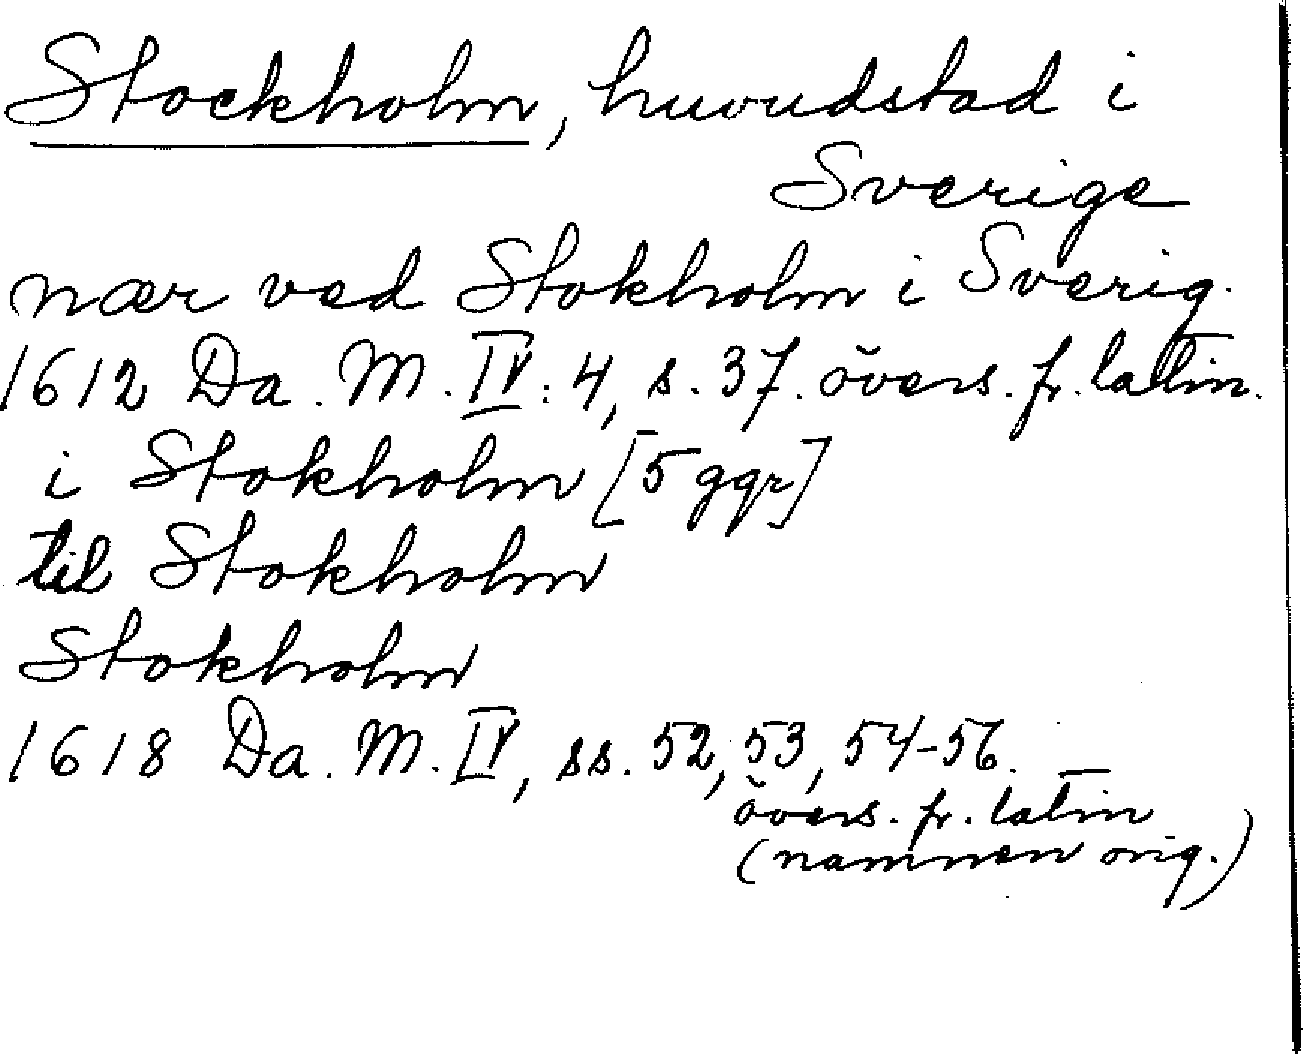 Stockholm, huvudstad i
Sverige
nær ved Stokholm i Sverig.
1612 Da. M. IV: 4, s. 37. övers. fr. latin.
i Stokholm [5 ggr]
til Stokholm
Stokholm
1618 Da. M. IV, ss. 52, 53, 54-56.
övers. fr. latin
(namnen orig.)